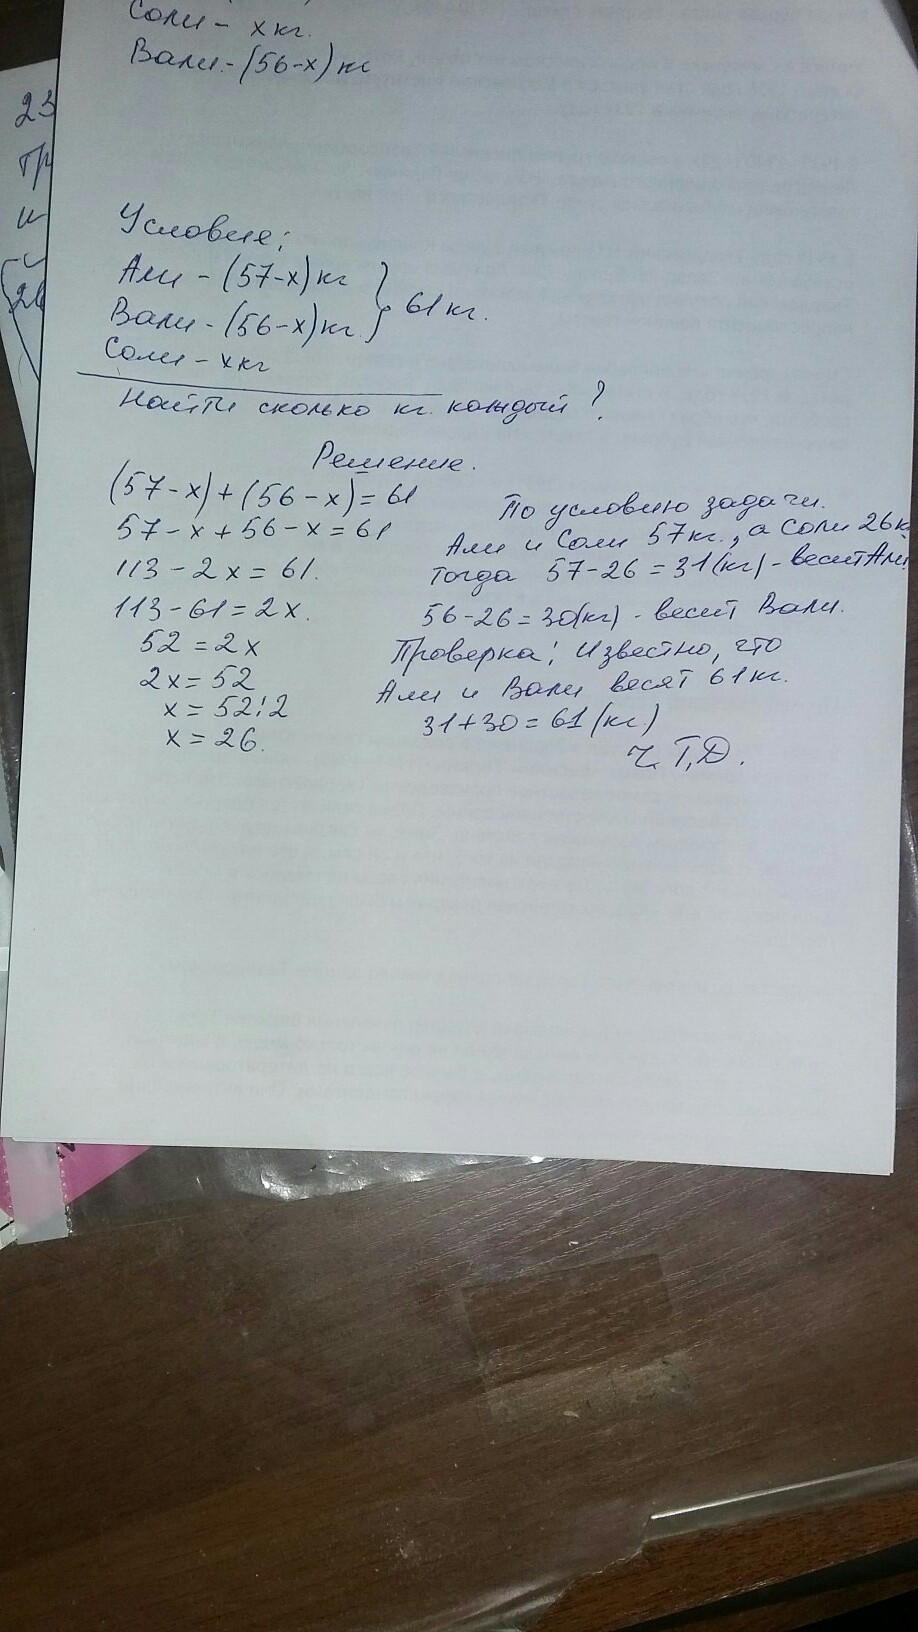 Соли - х кг.
Вали - (56-х) кг
23
тр
и
26
Условие:
Али - (57-х) кг
Вали - (56-х) кг. } 61 кг.
Соли - х кг
Найти сколько кг. каждый ?
Решение.
(57-х)+(56-х)=61
57-х+56-х=61
113-2х=61.
113-61=2х.
52=2х
2х=52
х=52:2
х=26.
По условию задачи.
Али и Соли 57 кг., а Соли 26 к
тогда 57-26=31(кг) - весит Али.
56-26=30(кг) - весит Вали.
Проверка: Известно, что
Али и Вали весят 61 кг.
31+30=61(кг)
Ч.Т.Д.